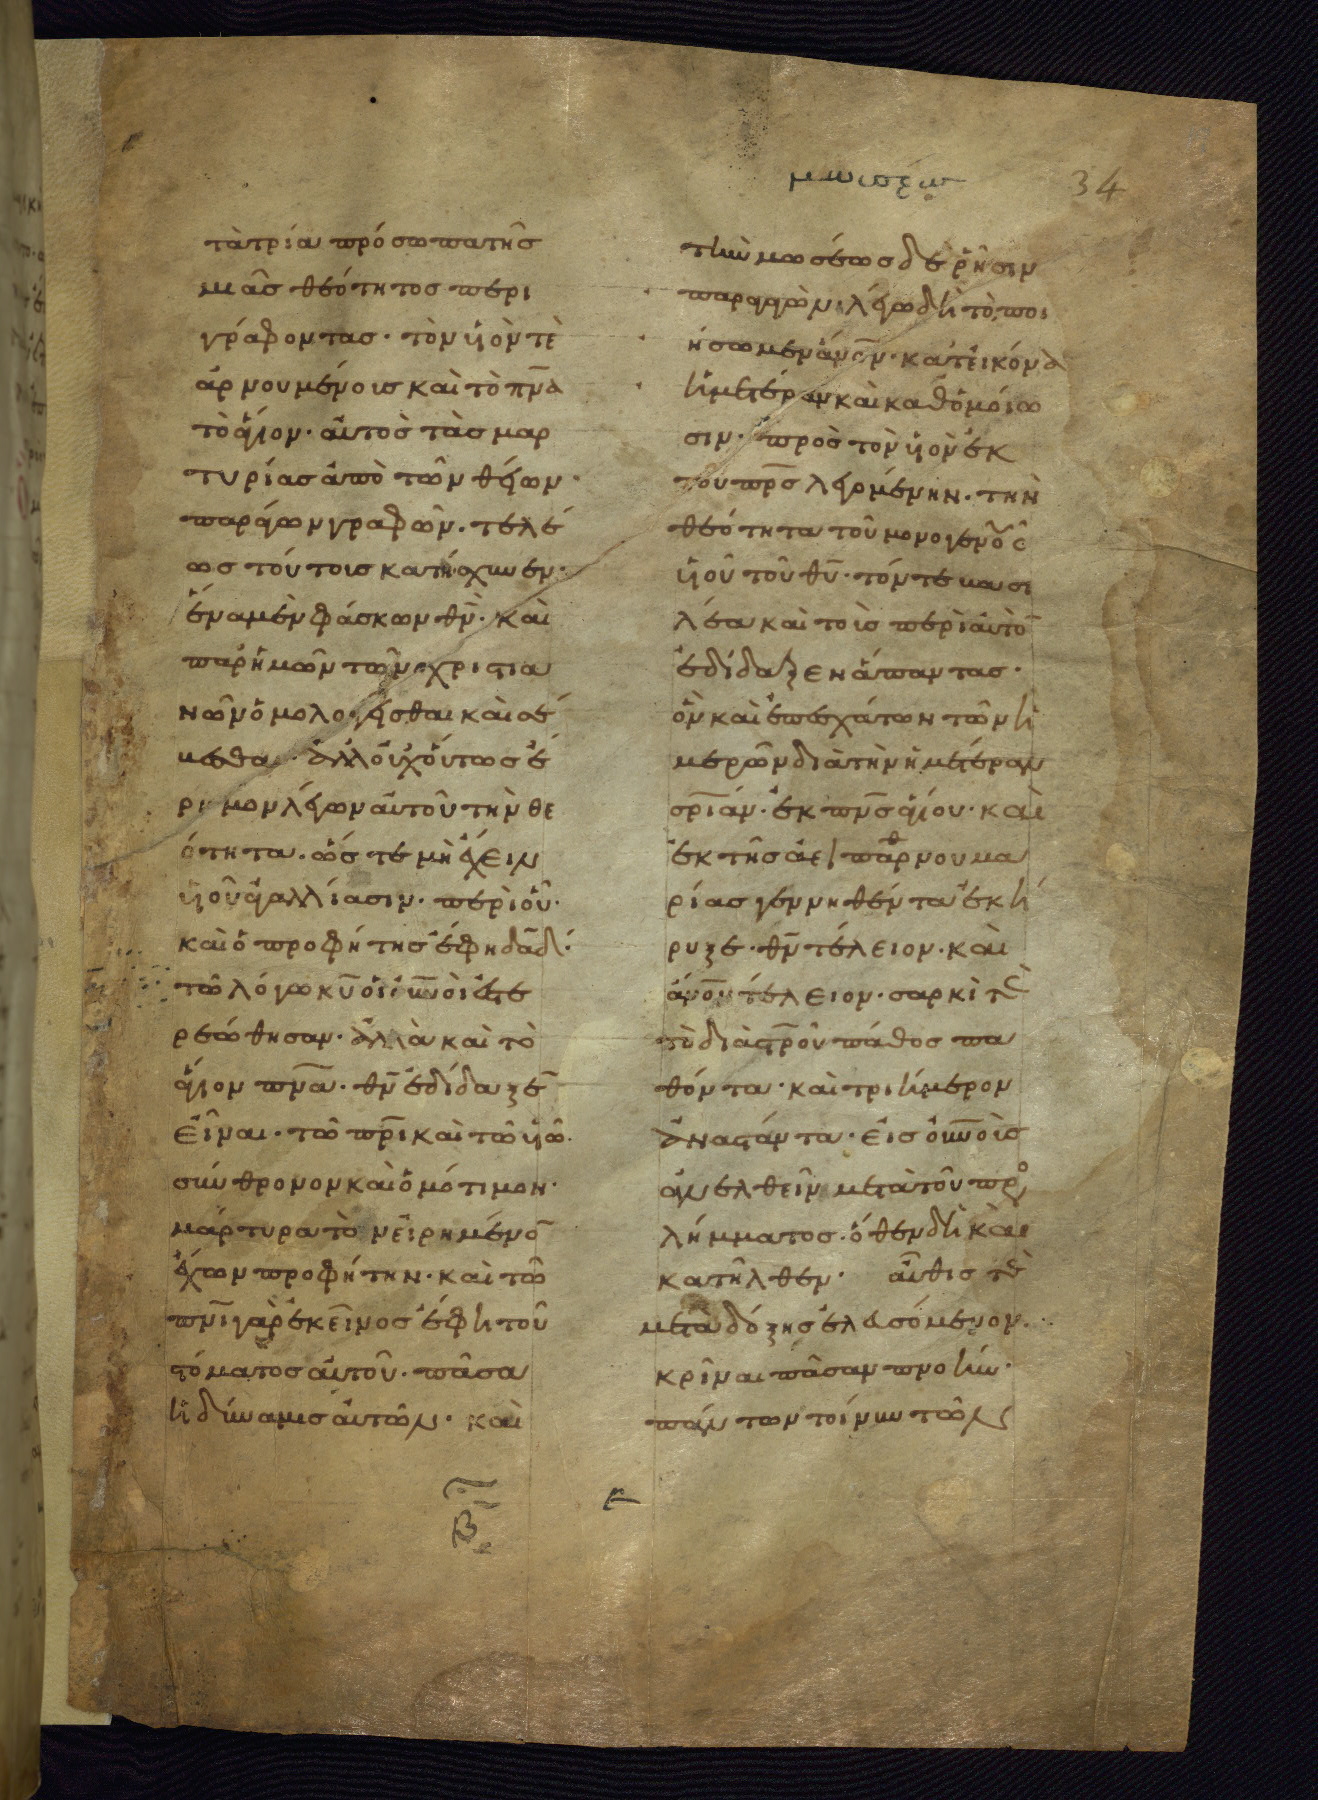 μωυσέως
34
τὰ τρία πρόσωπα τῆσ
μιᾶσ θεότητοσ περι
γράφοντασ· τὸν ὑιὸν τὲ
ἀρνουμένοισ καὶ τὸ πν̅α
τὸ ἅγιον· αὐτὸσ τὰσ μαρ
τυρίασ ἀπὸ τῶν θείων·
παράγων γραφῶν· τελέ
ωσ τούτοισ κατήσχυνεν·
ἕνα μὲν φάσκων θν̅· καὶ
παρ ἡμῶν τῶν χριστια
νῶν ὁμολογεῖσθαι καὶ σέ
βεσθαι· ἀλλ οὐχ οὕτωσ ἔ
ρημον λέγων αὐτοῦ τὴν θε
ότητα· ὥστε μὴ ἔχειν
ὑιοῦ ἀγαλλίασιν· περὶ οὗ·
καὶ ὁ προφήτησ ἔφη δᾱδ·
τῶ λόγω κυ̅ οἱ ουν̅οὶ ἐστε
ρεώθησαν· ἀλλὰ καὶ τὸ
ἅγιον πνα̅· θν̅ ἐδίδαξε
εἶναι· τῶ πρι̅ καὶ τῶ ὑιῶ·
σύνθρονον καὶ ὁμότιμον·
μάρτυρα τὸν εἰρημένο̅
ἔχων προφήτην· καὶ τῶ
πνι̅ γὰρ ἐκεῖνοσ ἔφη τοῦ
στόματοσ αὐτοῦ· πᾶσα
ἡ δύναμισ αὐτῶν· καὶ
τὴν μωσέωσ δὲ ῥῆσιν
παραγαγὼν· λέγω δὴ τὸ ποι
ήσωμεν ἄνο̅ν· κατ εἰκόνα
ἡμετέραν καὶ καθ ὁμοίω
σιν· πρὸσ τὸν ὑιὸν ἐκ
τοῦ πρσ̅ λεγομένην· τὴν
θεότητα τοῦ μονογενοῦσ
ὑιοῦ τοῦ θυ̅· τόν τε βασι
λέα καὶ τοῖσ περὶ αὐτὸ̅
ἐδίδαξεν ἅπαντασ·
ὃν καὶ ἐπ ἐσχάτων τῶν ἡ
μερῶν διὰ τὴν ἡμετέραν
σρι̅αν· ἐκ πνσ̅ ἁγίου· καὶ
ἐκ τῆσ ἀει παρθνου μα
ρίασ γεννηθέντα ἐκή
ρυξε· θν̅ τέλειον· καὶ
ἄνο̅ν τέλειον· σαρκὶ τὲ
τὸ διὰ στρο̅υ πάθοσ πα
θόντα· καὶ τριήμερον
ἀναστάντα· εἰσ οὐν̅οὺσ
ἀνελθεῖν μετὰ τοῦ προσ
λήμματοσ· ὅθεν δὴ καὶ
κατῆλθεν· αὖθισ τὲ
μετὰ δόξησ ἐλευσόμενον·
κρῖναι πᾶσαν πνοήν·
πάντων τοίνυν τῶν